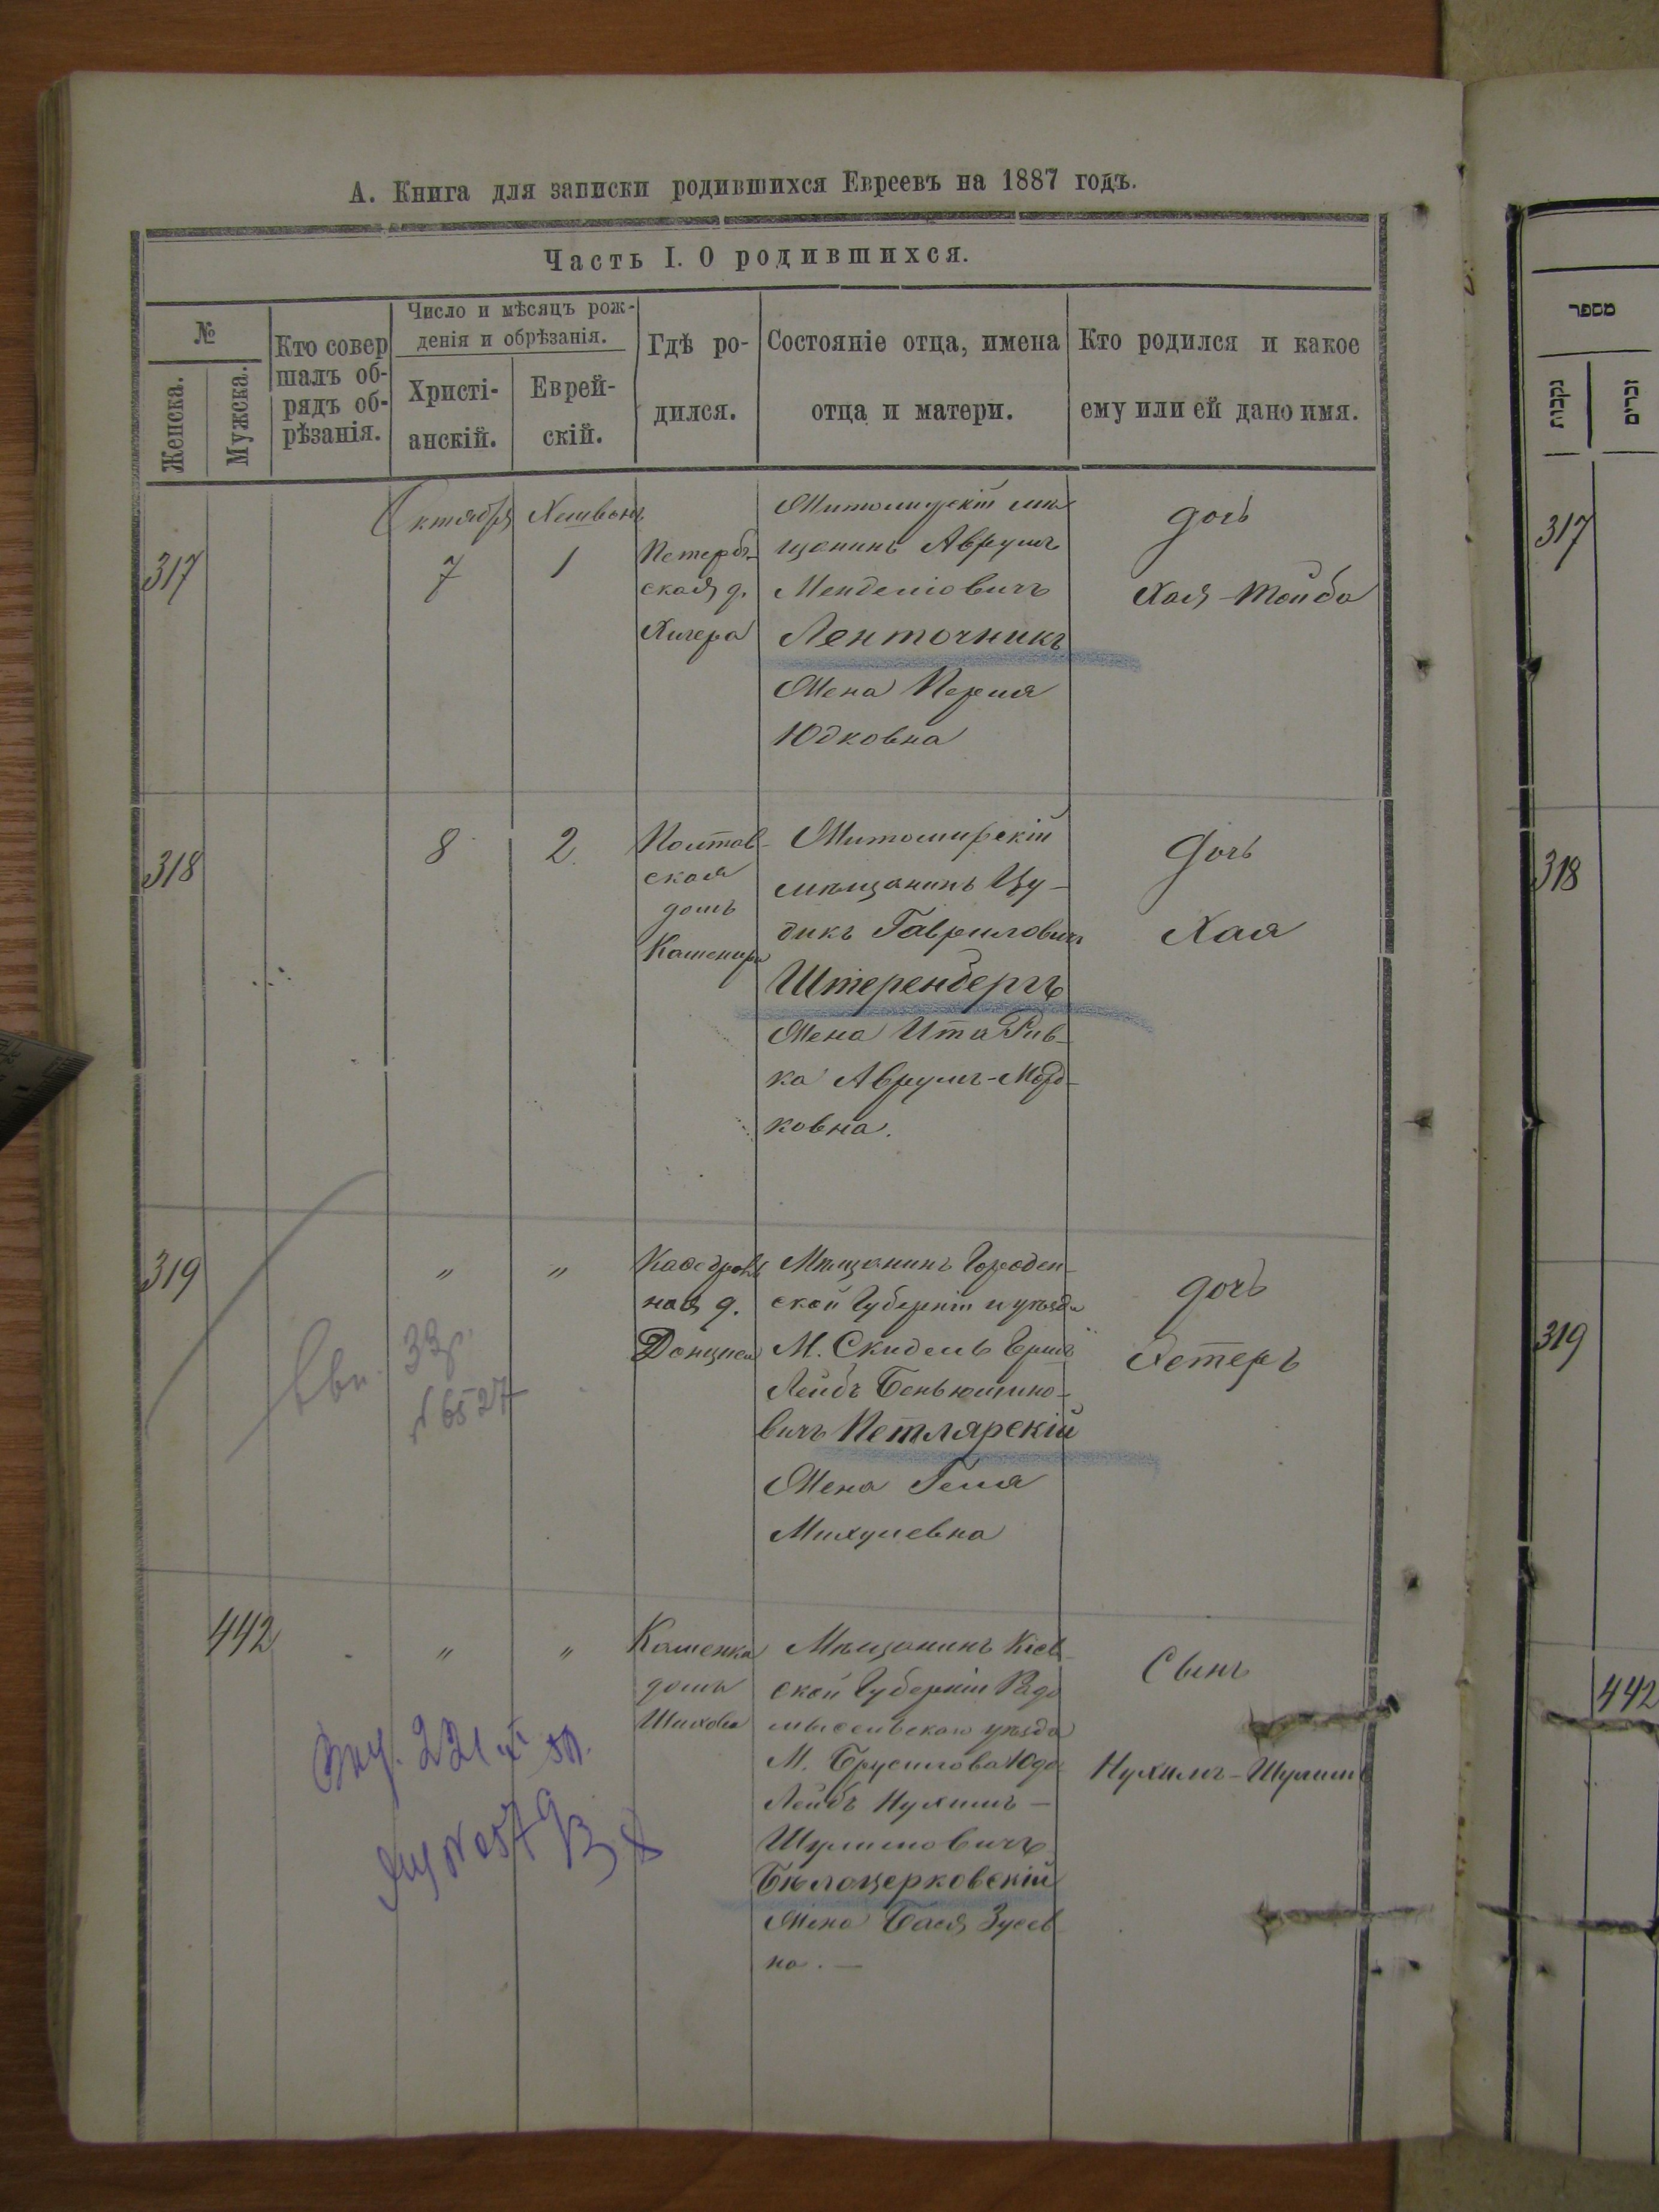 А. Книга для записки родившихся Евреевъ на 1887 годъ.
Часть I. О родившихся.
№
Женска.
Мужска.
Кто совер
шалъ об-
рядъ об-
рѣзанія.
Число и мѣсяцъ рож-
денія и обрѣзанія.
Христі-
анскій.
Еврей-
скій.
Гдѣ ро-
дился.
Состояніе отца, имена
отца и матери.
Кто родился и какое
ему или ей дано имя.
317
Октября
7
Хешвонъ
1
Петерб-
ская д.
Хигера
Житомирскій мѣ
щанинъ Аврумъ
Менделіовичъ
Ленточникъ
Жена Перля
Юдковна
дочь
Хая-Тойба
318
8
2
Полтав-
ская
домъ
Житомирскій
мѣщанинъ Цу-
дикъ Гавриловичъ
Штеренбергъ
Жена Ита Рив-
ка Аврумъ-Морд-
ковна.
Дочь
Хая
319
"
"
Каѳедраль
ная д.
Мѣщанинъ Городен-
ской Губерніи и уѣзда
М. Скидель Герш
Лейбъ Беньюмино-
вичъ Петлярскій
Жена Геня
Михулевна
дочь
Эстеръ
№ 6527
442
"
"
Каменка
домъ
Мѣщанинъ Кіев-
ской Губерніи Радо
мысльскаго уѣзда
М. Брусилова Юдо
Лейбъ Нухимъ-
Шулимовичъ
Бѣлоцерковскій
Жена Бася Зусев
на. —
Сынъ
Нухимъ-Шулимъ
מספר
נקבות
זכרים
317
318
319
442